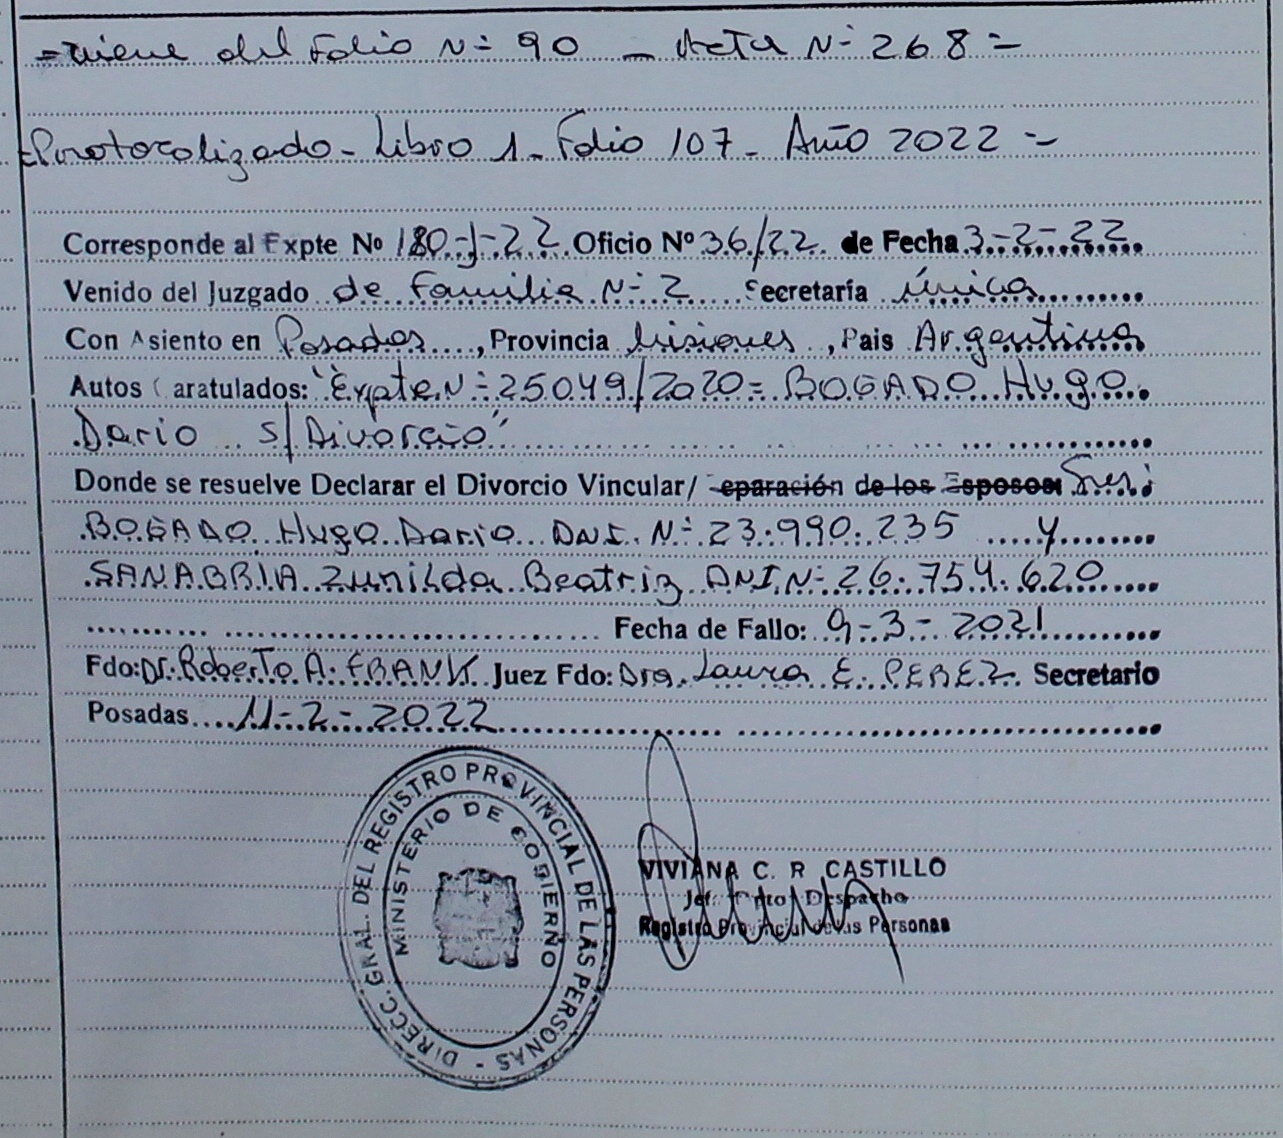 =Viene del Folio N= 90 - Acta N= 268=
=Protocolizado- Libro 1- Folio 107- Año 2022=
Corresponde al Expte Nº 180-J-22 Oficio Nº 36/22 de Fecha 3-2-22
Venido del Juzgado de Familia N= 2 Secretaría única
Con Asiento en Posadas, Provincia Misiones, Pais Argentina
Autos Caratulados: "Expte N= 25049/2020= BOGADO Hugo
Dario s/Divorcio"
Donde se resuelve Declarar el Divorcio Vincular/ Separación de los Esposos Sres:
BOGADO Hugo Dario DNI. N= 23.990.235 y
SANABRIA Zunilda Beatriz DNI N= 26.754.620
Fecha de Fallo: 9-3-2021
Fdo: Dr. Roberto A. FRANK Juez Fdo: Dra. Laura E. PEREZ Secretario
Posadas 11-2-2022
DIRECC. GRAL. DEL REGISTRO PROVINCIAL DE LAS PERSONAS -
MINISTERIO DE GOBIERNO
VIVIANA C. R CASTILLO
Despacho
Registro Provincial de las Personas